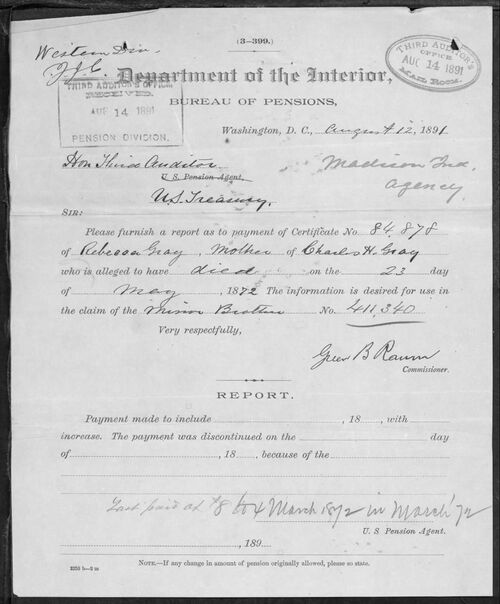 (3—399.)
Western Div.
J.J.C.
Department of the Interior,
THIRD AUDITOR'S OFFICE
RECEIVED.
AUG 14 1891
PENSION DIVISION.
THIRD AUDITOR'S
OFFICE
AUG 14 1891
MAIL ROOM.
BUREAU OF PENSIONS,
Washington, D. C., August 12, 1891
Hon Third Auditor
U. S. Pension Agent,
U.S. Treasury.
Madison Ind.
agency.
SIR:
Please furnish a report as to payment of Certificate No. 84,878
of Rebecca Gray, Mother of Charles H. Gray
who is alleged to have died on the 23 day
of May, 1872 The information is desired for use in
the claim of the Minor Brother No. 411,340
Very respectfully,
Green B Raum
Commissioner.
REPORT.
Payment made to include , 18 , with
increase. The payment was discontinued on the day
of , 18 , because of the
Last paid at $8 to 4 March 1872 in March '72
U. S. Pension Agent.
, 189
NOTE.—If any change in amount of pension originally allowed, please so state.